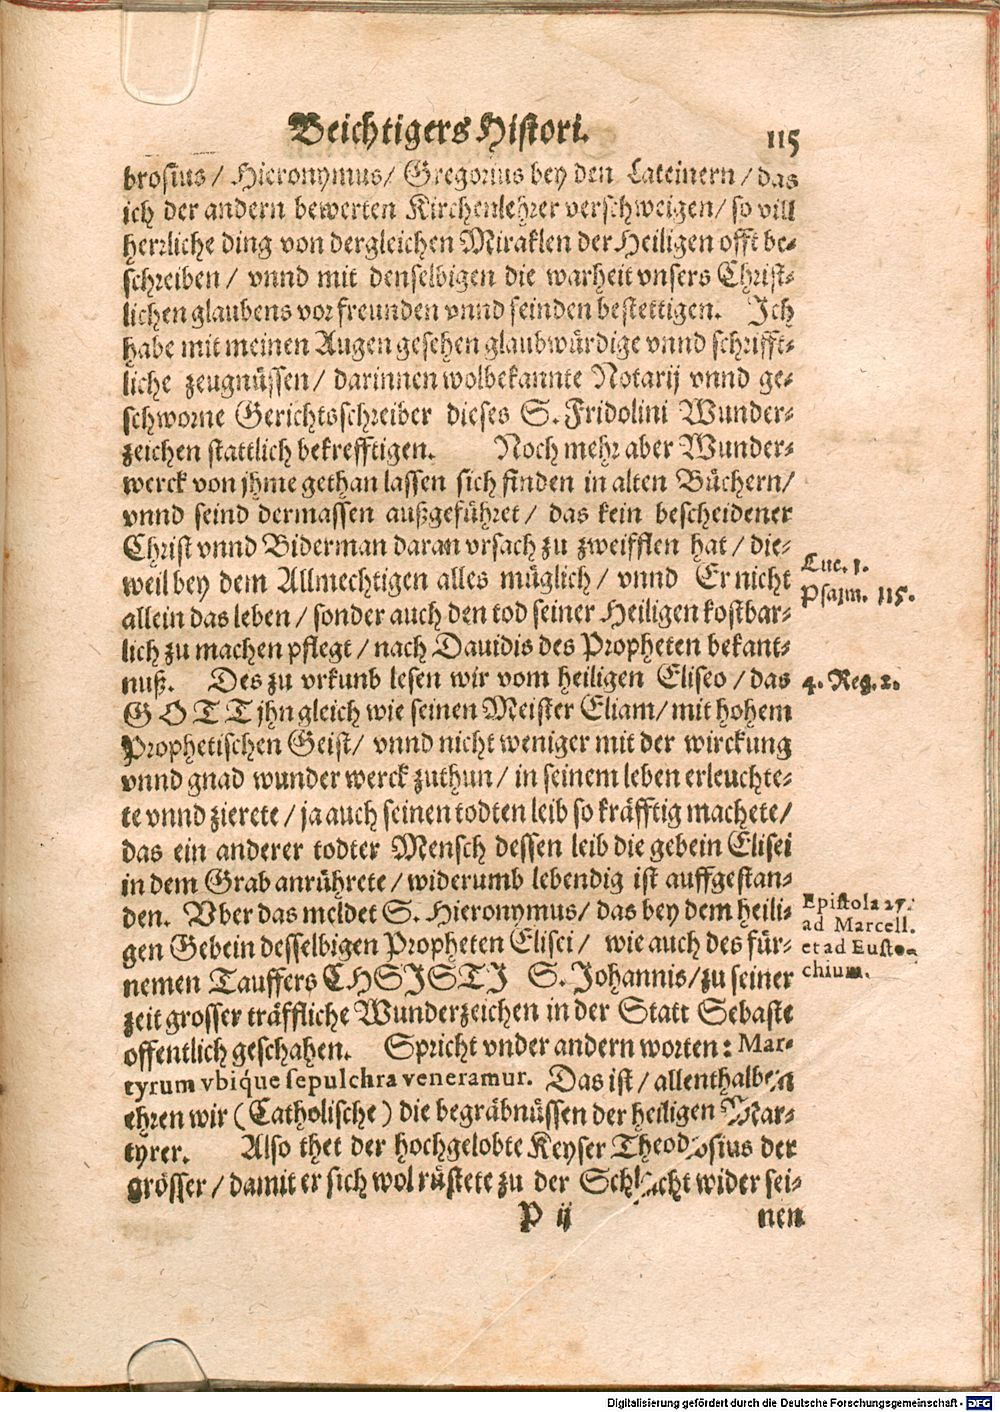 Beichtigers Histori. 115
brosius / Hieronymus / Gregorius bey den Lateinern / das
ich der andern bewerten Kirchenlehrer verschweigen / so vill
herrliche ding von dergleichen Miraklen der Heiligen offt be-
schreiben / vnnd mit denselbigen die warheit vnsers Christ-
lichen glaubens vor freunden vnnd feinden bestettigen. Ich
habe mit meinen Augen gesehen glaubwürdige vnnd schrifft-
liche zeugnüssen / darinnen wolbekannte Notarij vnnd ge-
schworne Gerichtsschreiber dieses S. Fridolini Wunder-
zeichen stattlich bekrefftigen. Noch mehr aber Wunder-
werck von jhme gethan lassen sich finden in alten Büchern /
vnnd seind dermassen außgeführet / das kein bescheidener
Christ vnnd Biderman daran vrsach zu zweifflen hat / die-
weil bey dem Allmechtigen alles müglich / vnnd Er nicht
Luc. 1.
Psalm. 115.
allein das leben / sonder auch den tod seiner Heiligen kostbar-
lich zu machen pflegt / nach Dauidis des Propheten bekant-
nuß. Des zu vrkunb lesen wir vom heiligen Eliseo / das
4. Reg. 2.
GOTT jhn gleich wie seinen Meister Eliam / mit hohem
Prophetischen Geist / vnnd nicht weniger mit der wirckung
vnnd gnad wunder werck zuthun / in seinem leben erleuchte-
te vnnd zierete / ja auch seinen todten leib so kräfftig machete /
das ein anderer todter Mensch dessen leib die gebein Elisei
in dem Grab anrührete / widerumb lebendig ist auffgestan-
den. Vber das meldet S. Hieronymus / das bey dem heili-
gen Gebein desselbigen Propheten Elisei / wie auch des für-
Epistola 27.
ad Marcell.
et ad Eusto-
chium.
nemen Tauffers CHSISTI S. Johannis / zu seiner
zeit grosser träffliche Wunderzeichen in der Statt Sebaste
offentlich geschahen. Spricht vnder andern worten: Mar-
tyrum vbique sepulchra veneramur. Das ist / allenthalben
ehren wir (Catholische) die begräbnüssen der heiligen Mar-
tyrer. Also thet der hochgelobte Keyser Theodosius der
grösser / damit er sich wol rüstete zu der Schlacht wider sei-
P ij nen
Digitalisierung gefördert durch die Deutsche Forschungsgemeinschaft - DFG